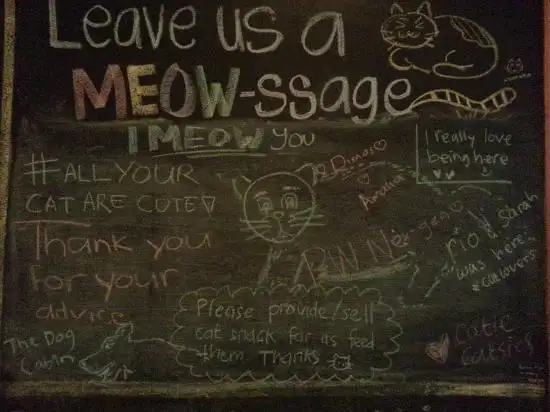 Leave us a
MEOW-ssage
I MEOW you
I really love
being here
#ALL YOUR
CAT ARE CUTE
Dimas
Amalia
Thank you
for your
advice
Sarah
rio
was here
#catlovers
Please provide/sell
cat snack for us feed
them Thanks
The Dog
Cabin
Catie